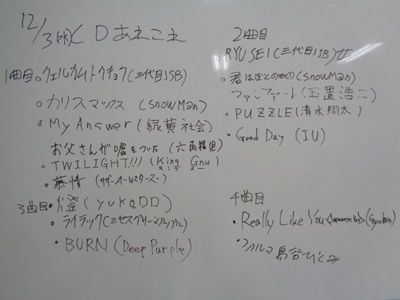 12/3(水)CDあえこえ
1曲目。ウェルカムトウキョウ(三代目JSB)
・カリスマックス(SnowMan)
・My Answer(緑黄社会)
お父さんが嘘をついた(六角精児)
・TWILIGHT!!!(King Gnu)
・慕情(サザンオールスターズ)
3曲目・灯(yuKaDD)
・ライラック(ミセスグリーンアップル)
・BURN(Deep Purple)
2曲目
RYUSEI(三代目JSB)
・君は(SnowMan)
(玉置浩二)
・PUZZLE(清水翔太)
・Good Day(IU)
4曲目
・Really Like You
・島谷ひとみ